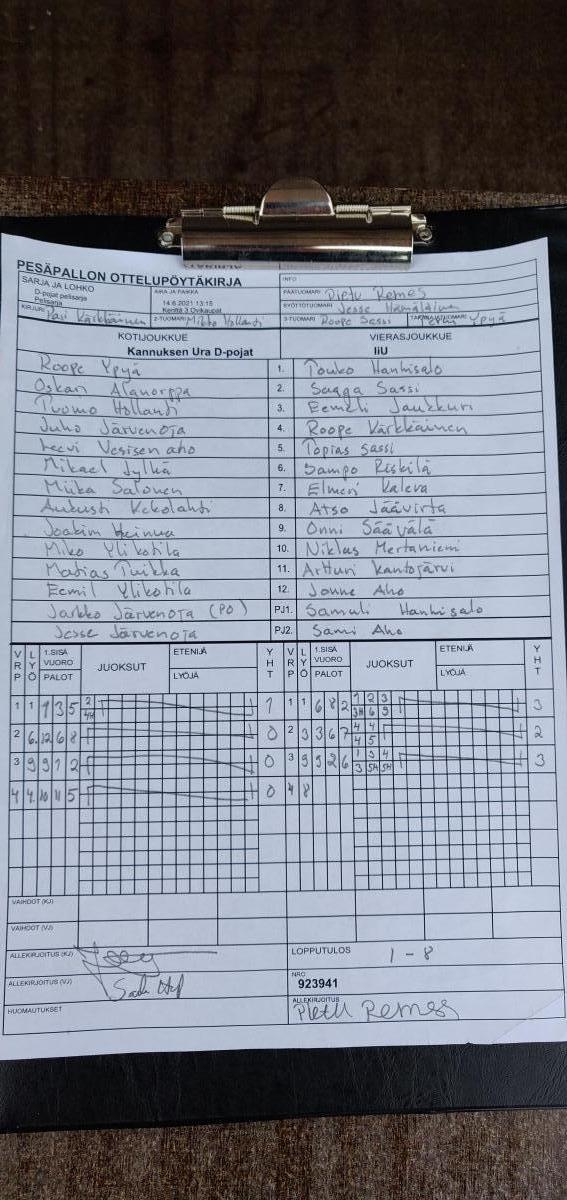 PESÄPALLON OTTELUPÖYTÄKIRJA
SARJA JA LOHKO
D-pojat pelisarja
Pelisarja
AIKA JA PAIKKA
14.6.2021 13:15
Kenttä 3 Ovikaupat
INFO
PÄÄTUOMARI Pietu Remes
SYÖTTÖTUOMARI Jesse Hämäläinen
KIRJURI Pasi Kärkkäinen
2-TUOMARI Mikko Hollanti
3-TUOMARI Roope Sassi
Ypyä
KOTIJOUKKUE
VIERASJOUKKUE
Kannuksen Ura D-pojat
IiU
Roope Ypyä 1. Touko Hanhisalo
Oskari Alanorppa 2. Saaga Sassi
Tuomo Hollanti 3. Eemeli Jaukkuri
Juho Järvenoja 4. Roope Kärkkäinen
Leevi Vesisenaho 5. Topias Sassi
Mikael Jylhä 6. Sampo Riskilä
Miika Salonen 7. Elmeri Kaleva
Aukusti Kekolahti 8. Atso Jäävirta
Joakim Heinua 9. Onni Säävälä
Miko Ylikotila 10. Niklas Mertaniemi
Matias Tuikka 11. Artturi Kantojärvi
Eemil Ylikotila 12. Jonne Aho
Jarkko Järvenoja (PO) PJ1. Samuli Hanhisalo
Jesse Järvenoja PJ2. Sami Aho
VRP LYÖ 1.SISÄ VUORO PALOT JUOKSUT ETENIJÄ LYÖJÄ YHT VRP LYÖ 1.SISÄ VUORO PALOT JUOKSUT ETENIJÄ LYÖJÄ YHT
1 1 1 3 5 2 4H 1 1 1 6 8 2 1 2 3 3H 6 9 3
2 6. 12 6 8 0 2 3 3 6 7 4 4 4 5 2
3 9 9 1 2 0 3 9 9 2 6 1 3 4 3 5H 5H 3
4 4. 10 11 5 0 4 8
VAIHDOT (KJ)
VAIHDOT (VJ)
ALLEKIRJOITUS (KJ)
LOPPUTULOS 1 - 8
ALLEKIRJOITUS (VJ)
NRO
923941
HUOMAUTUKSET
ALLEKIRJOITUS
Pietu Remes